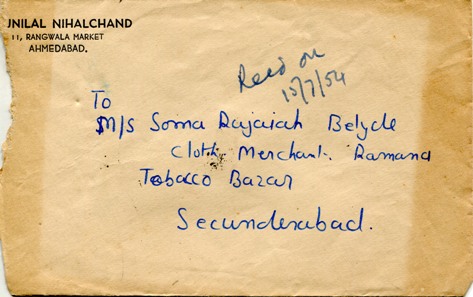 UNILAL NIHALCHAND
11, RANGWALA MARKET
AHMEDABAD.
Recd on
15/7/54
To
M/S Soma Rajaiah Belyde
Cloth Merchant. Ramana
Tobacco Bazar
Secunderabad.